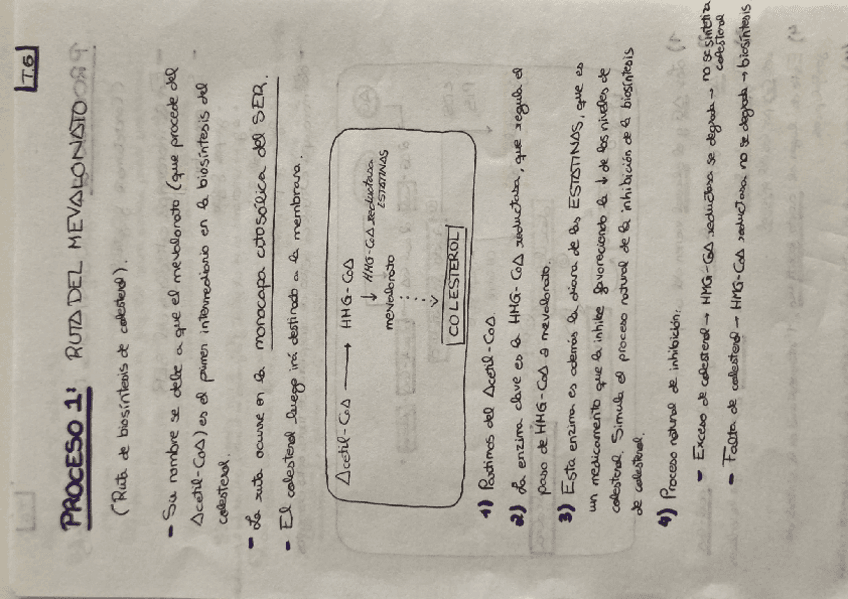 T.6
PROCESO 1: RUTA DEL MEVALONATO
(Ruta de biosíntesis de colesterol).
- Su nombre se debe a que el mevalonato (que procede del
Acetil-CoA) es el primer intermediario en la biosíntesis del
colesterol.
- La ruta ocurre en la monocapa citosólica del SER.
- El colesterol luego irá destinado a la membrana.
Acetil-CoA → HHG-CoA
↓ HHG-CoA reductasa
ESTATINAS
mevalonato
COLESTEROL
1) Partimos del Acetil-CoA.
2) La enzima clave es la HHG-CoA reductasa, que regula el
paso de HHG-CoA a mevalonato.
3) Esta enzima es además la diana de las ESTATINAS, que es
un medicamento que la inhibe favoreciendo la ↓ de los niveles de
colesterol. Simula el proceso natural de la inhibición de la biosíntesis
de colesterol.
4) Proceso natural de inhibición:
- Exceso de colesterol → HMG-CoA reductasa se degrada → no se sintetiza
colesterol
- Falta de colesterol → HMG-CoA reductasa no se degrada → biosíntesis